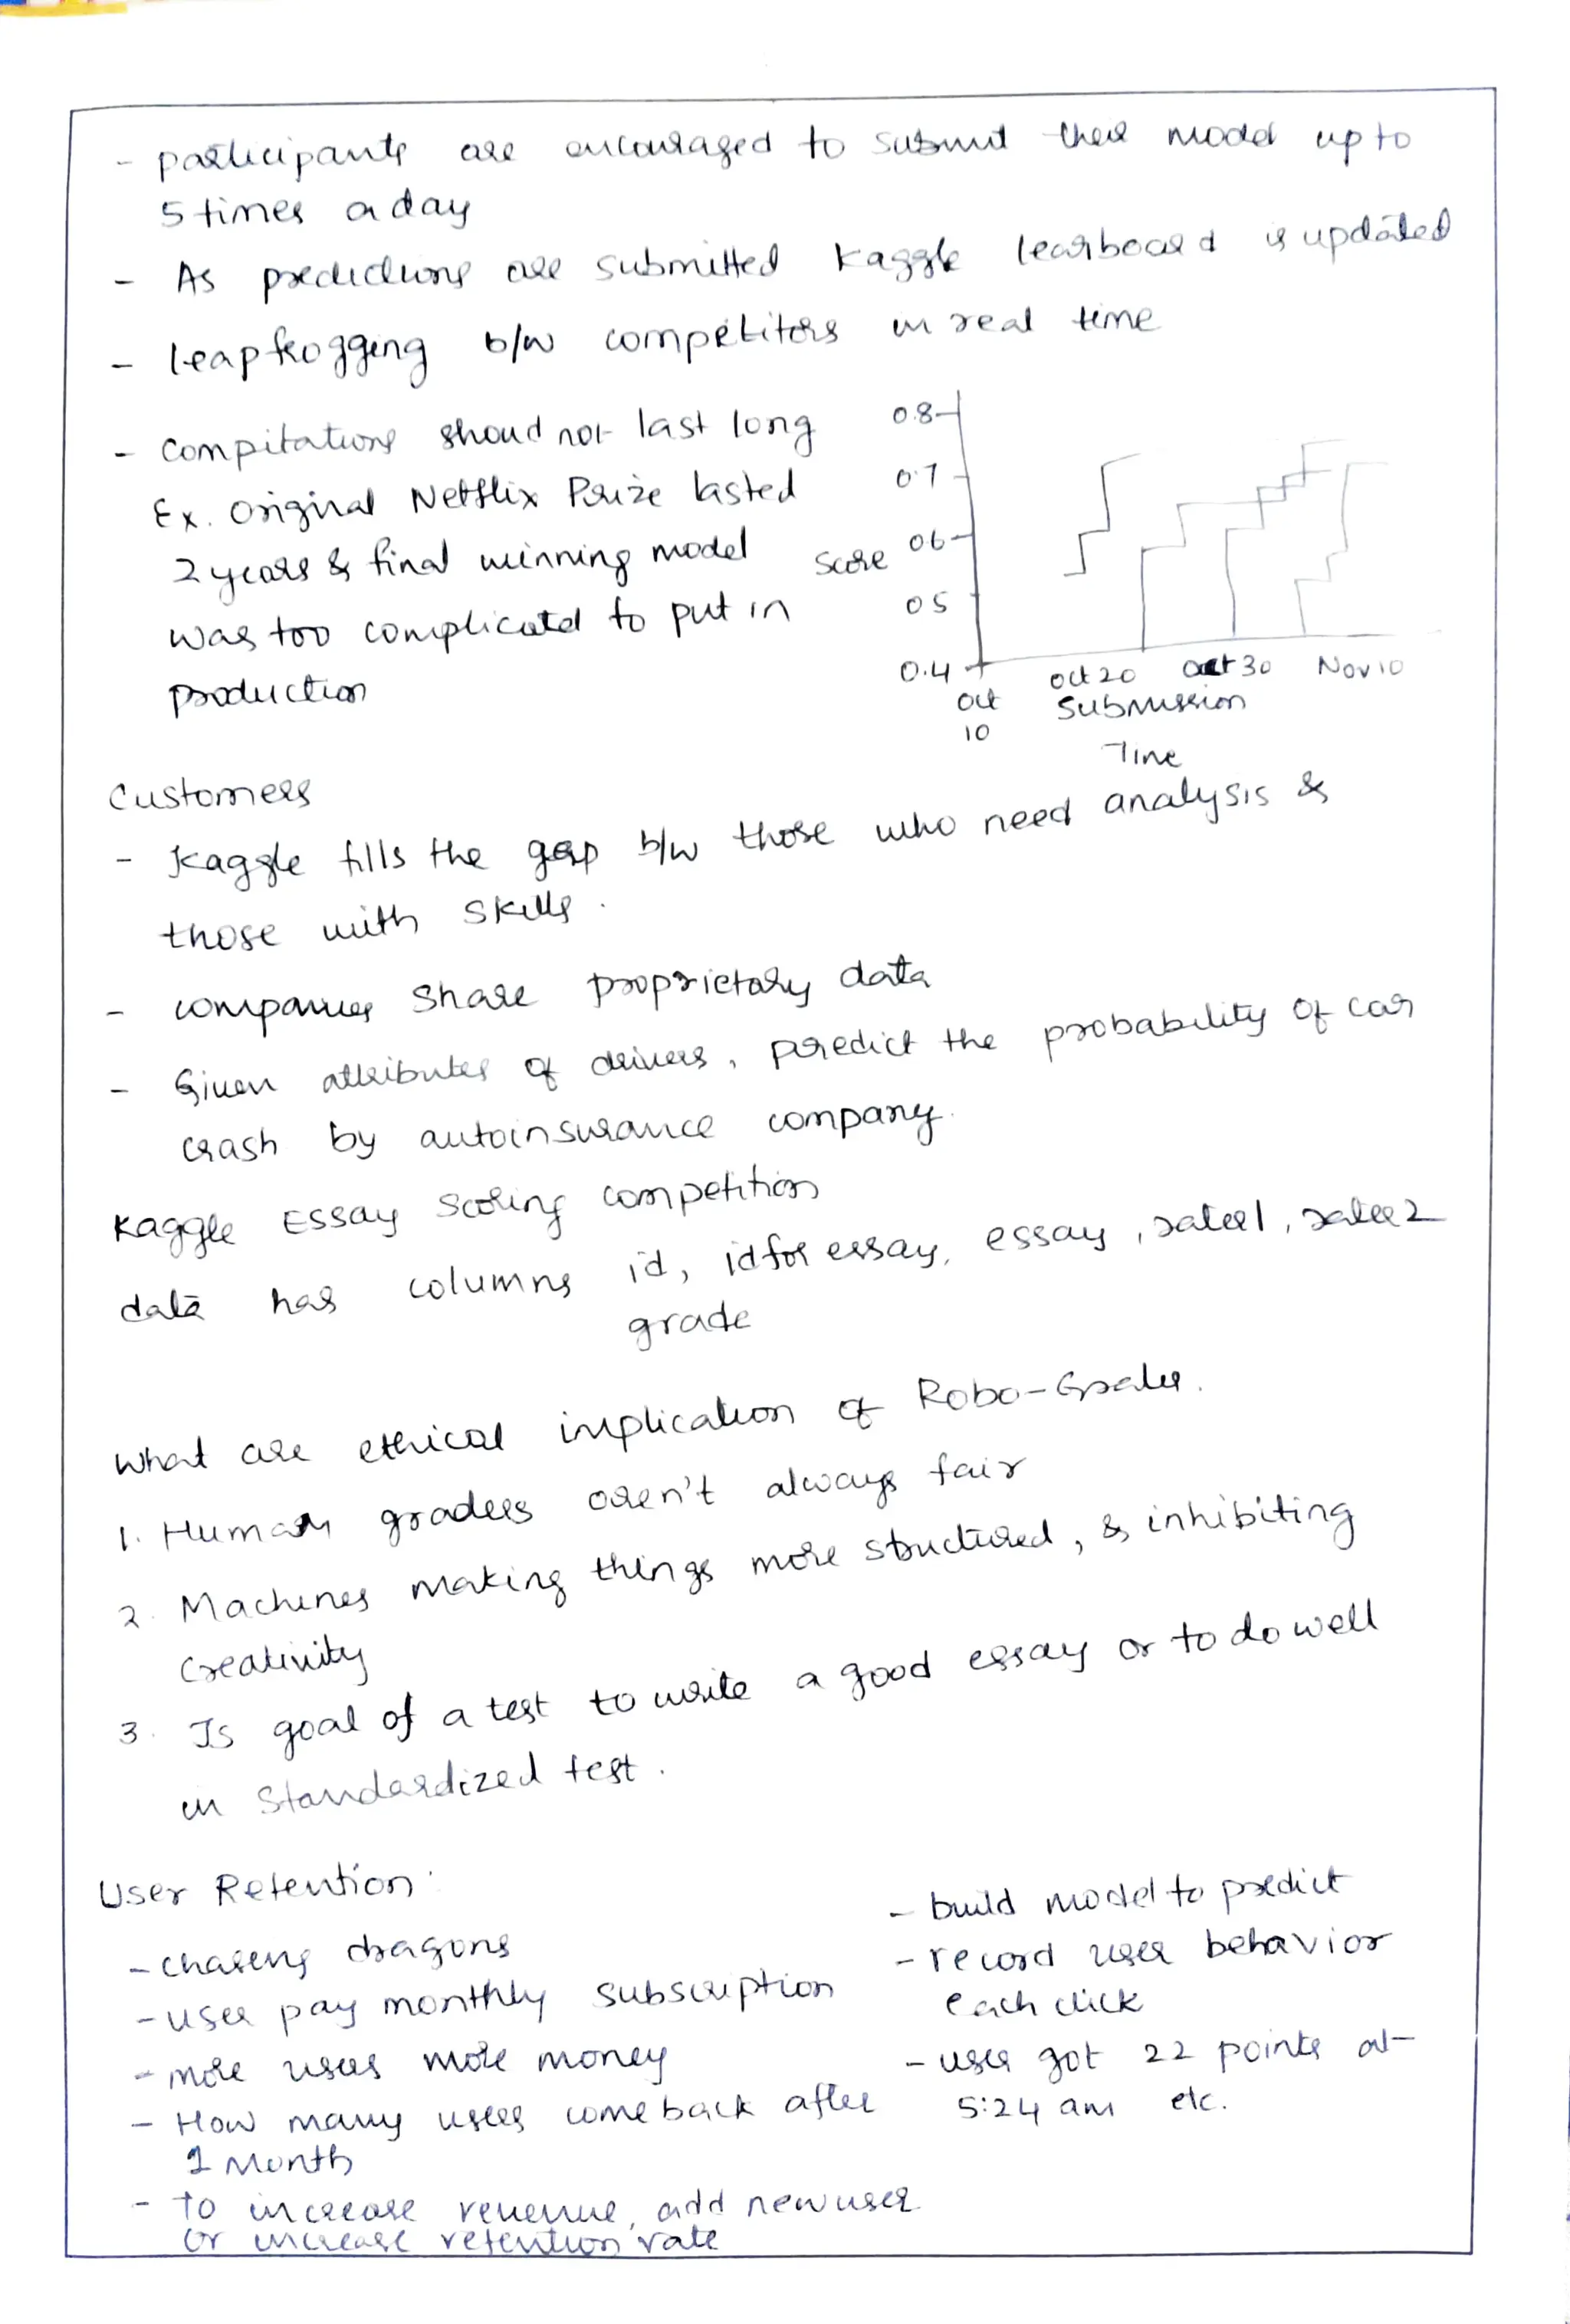 - participants are encouraged to submit their model up to
5 times a day
- As predictions are submitted Kaggle learboard is updated
- leapfrogging b/w competitors in real time
- Compitations shoud not last long
Ex. Original Netflix Prize lasted
2 years & final winning model
was too complicated to put in
production
0.8
0.7
06
Score
05
0.4
Oct 10
oct 20
oct 30
Nov 10
Submission
Time
Customers
- Kaggle fills the gap b/w those who need analysis &
those with skills.
- companies share proprietary data
- Given attributes of drivers, predict the probability of car
crash by autoinsurance company.
Kaggle Essay scoring competition
data has columns id, id for essay, essay, rater1, rater2
grade
What are ethical implication of Robo-Grader.
1. Human graders aren't always fair
2. Machines making things more structured, & inhibiting
creativity
3. Is goal of a test to write a good essay or to do well
in standardized test.
User Retention:
- chasing dragons
- user pay monthly subscription
- more users more money
- How many users come back after
1 Month
- to increase revenue, add new user
or increase retention rate
- build model to predict
- record user behavior
each click
- user got 22 points at
5:24 am etc.